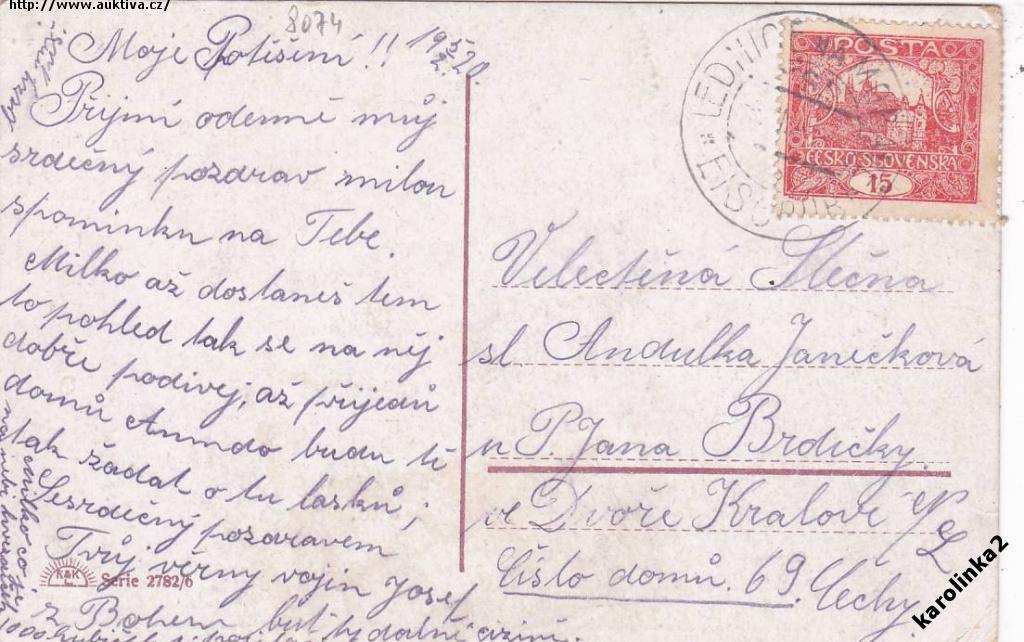 http://www.auktiva.cz/
8074
Moje Potěšení!! 19 5/2 20.
Přijmi odemně můj
srdečný pozdrav milou
spominku na Tebe.
Milko až dostaneš ten
to pohled tak se na něj
dobře podivej, až přijedu
domů Anundo budu tě
tak žádat o tu lásku,
Sesrdečný pozdravem
Tvůj věrný vojín Josef
z Bohem
K&K
Serie 2782/6
LEDNICE NA MOR
EISGRUB
POŠTA
ČESKO-SLOVENSKÁ
15
Velectěná Slečna
sl. Andulka Janečková
u P. Jana Brdičky.
ve Dvoře Kralové n/L
Číslo domů. 69. Čechy
karolinka2